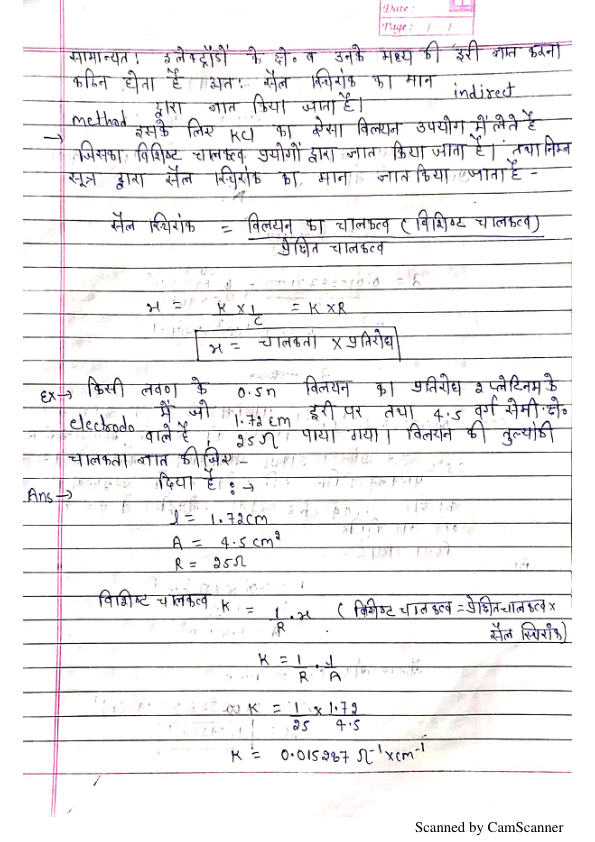 Date :
Page : / /
सामान्यत: इलेक्ट्रॉडों के क्षे० व उनके मध्य की दूरी ज्ञात करना
कठिन होता है अत: सैल स्थिरांक का मान indirect
method द्वारा ज्ञात किया जाता है।
→ इसके लिए KCl का ऐसा विलयन उपयोग में लेते है
जिसका विशिष्ट चालकत्व प्रयोगों द्वारा ज्ञात किया जाता है। तथा निम्न
सूत्र द्वारा सैल स्थिरांक का मान ज्ञात किया जाता है -
सैल स्थिरांक = विलयन का चालकत्व (विशिष्ट चालकत्व)
प्रेक्षित चालकत्व
x = K x 1/C = K x R
x = चालकता x प्रतिरोध
Ex → किसी लवण के 0.5n विलयन का प्रतिरोध 2 प्लेटिनम के
electrodo में जो 1.72 cm दूरी पर तथा 4.5 वर्ग सेमी. क्षे०
वाले है, 25Ω पाया गया। विलयन की तुल्यांकी
चालकता ज्ञात कीजिए -
Ans → दिया है : →
l = 1.72cm
A = 4.5 cm²
R = 25Ω
विशिष्ट चालकत्व K = 1/R . x (विशिष्ट चालकत्व = प्रेक्षित चालकत्व x
सैल स्थिरांक)
K = 1/R . l/A
K = 1/25 x 1.72/4.5
K = 0.015287 Ω⁻¹ x cm⁻¹
Scanned by CamScanner